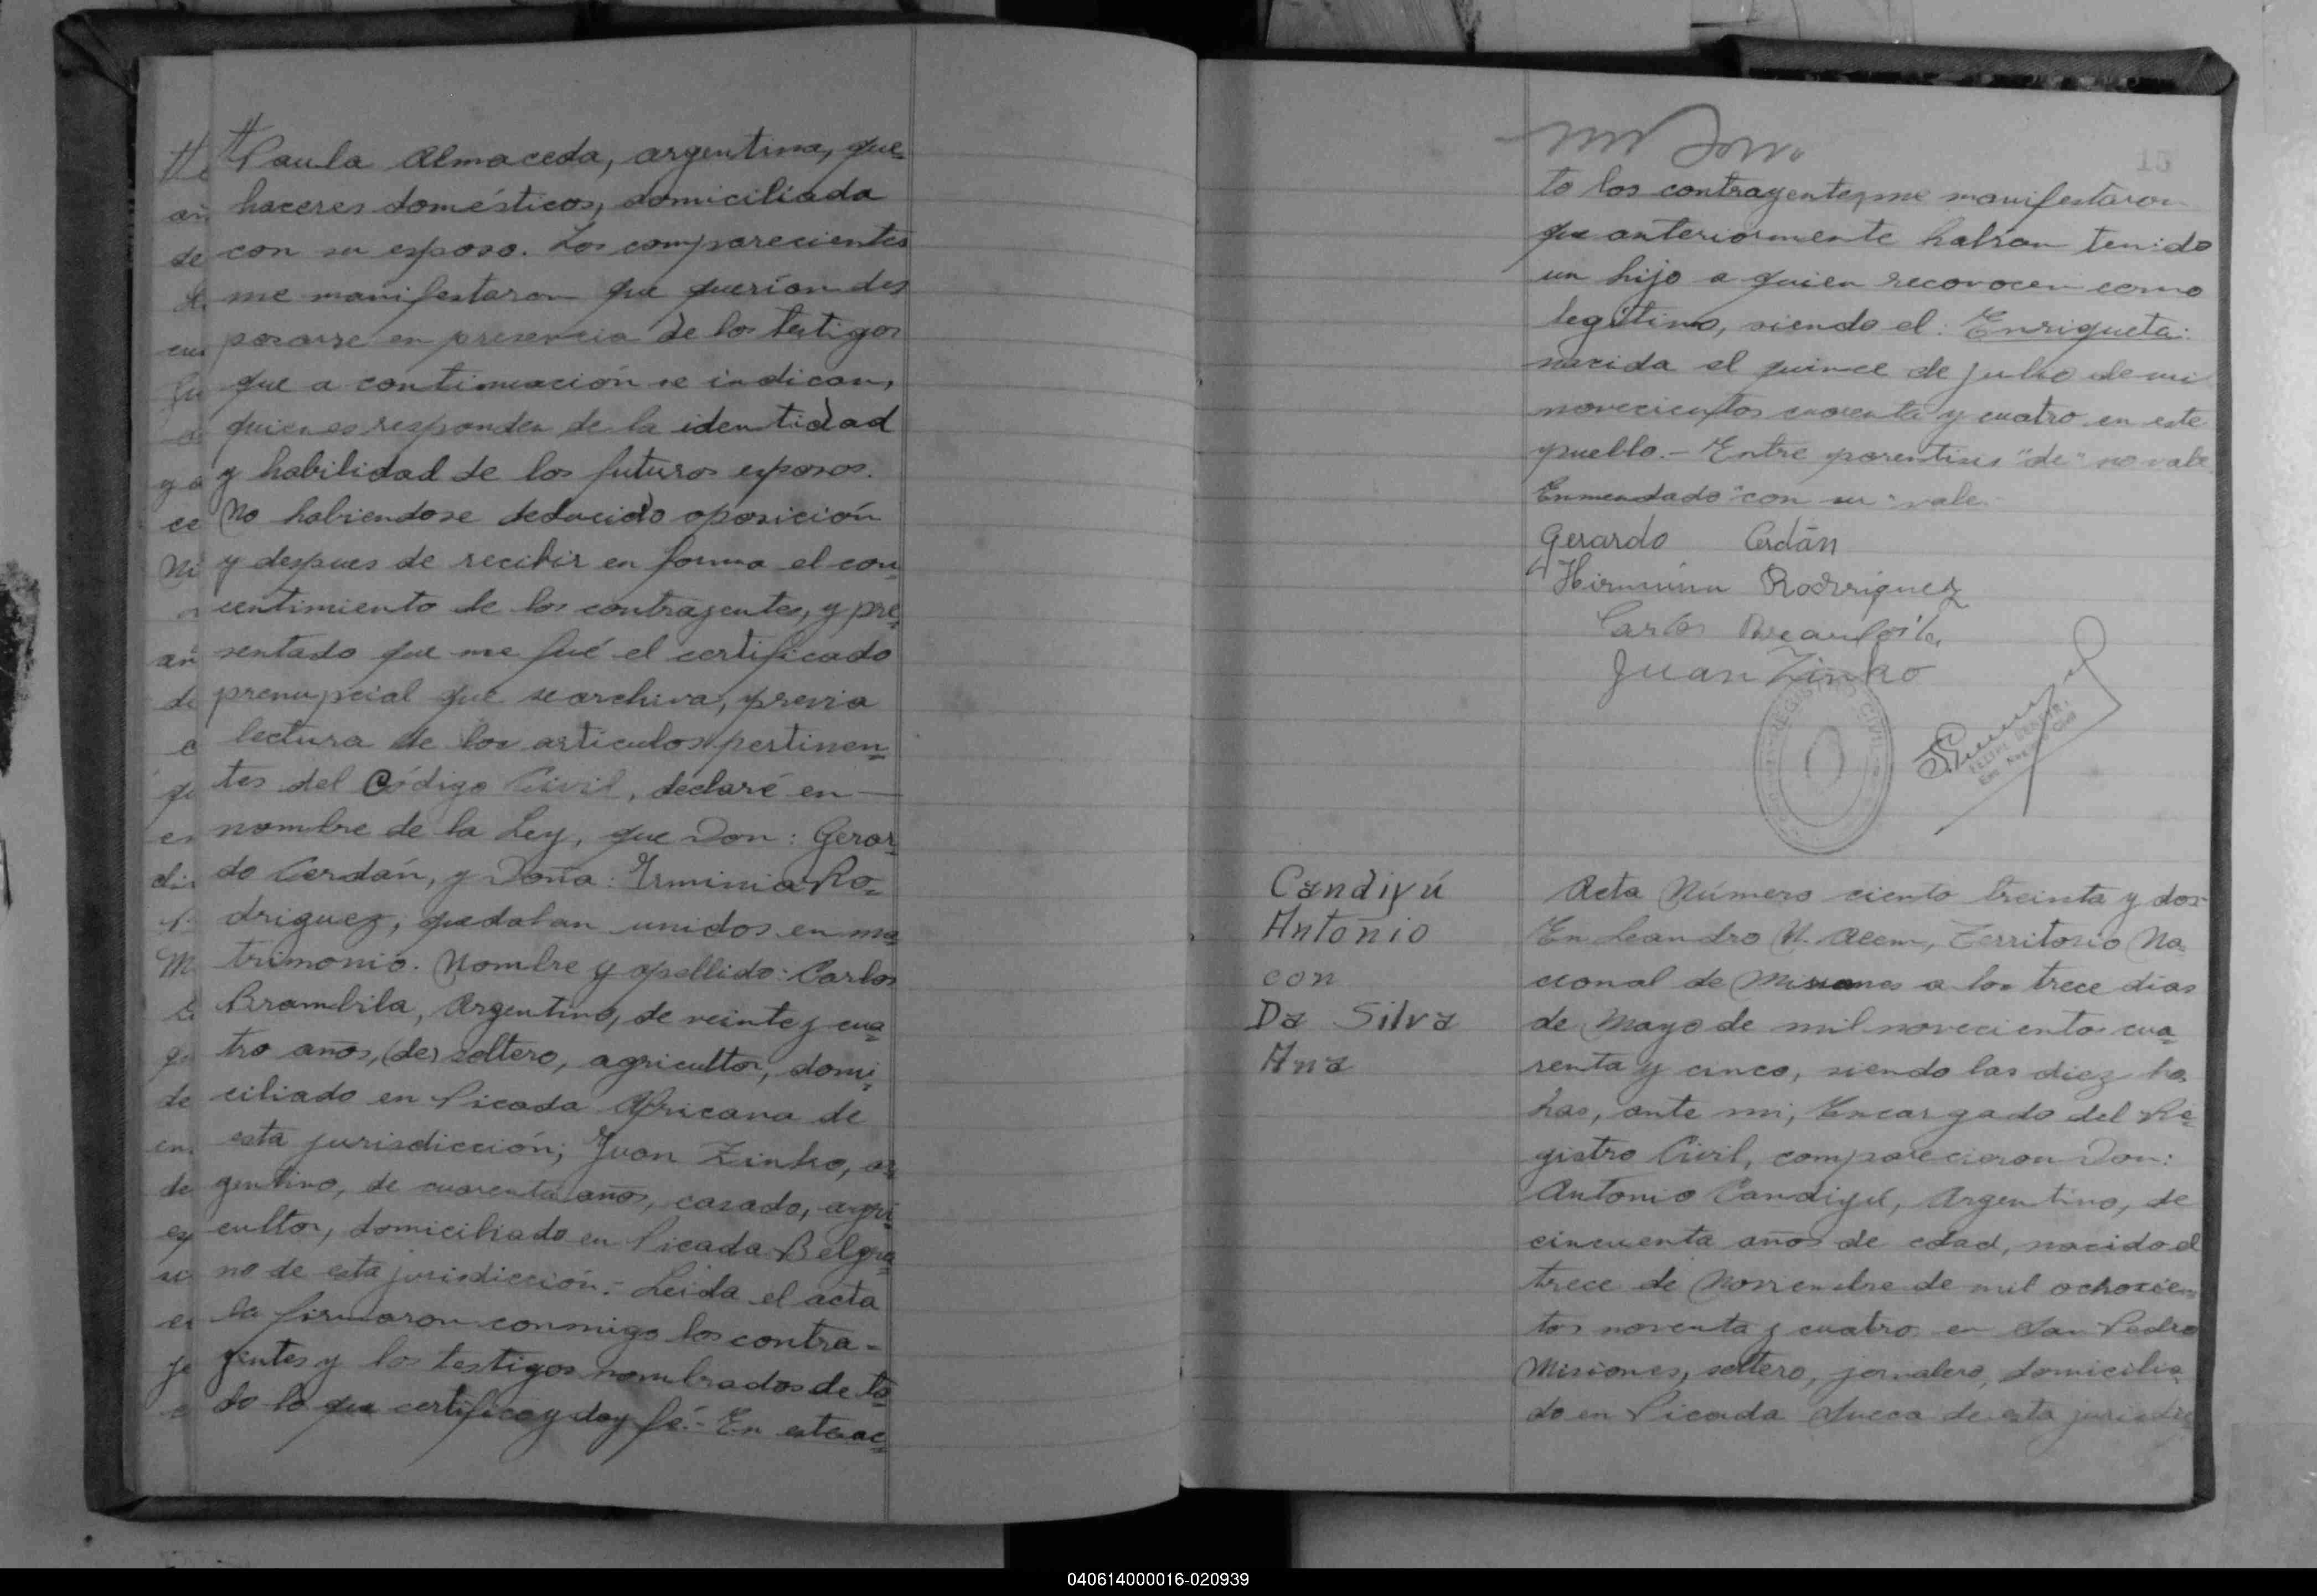 Paula Almaceda, argentina, que=
haceres domésticos, domiciliada
con su esposo. Los comparecientes
me manifestaron que querían des
posarse en presencia de los testigos
que a continuación se indican,
quienes responden de la identidad
y habilidad de los futuros esposos.
No habiendose deducido oposición
y despues de recibir en forma el con=
centimiento de los contrayentes, y pre=
sentado que me fué el certificado
prenupcial que se archiva, previa
lectura de los artículos pertinen=
tes del Código Civil, declaré en —
nombre de la Ley, que Don: Gerar=
do Cerdán, y Doña: Irminia Ro=
driguez, quedaban unidos en ma=
trimonio. Nombre y apellido: Carlos
Brambila, Argentino, de veinte y cua=
tro años, (de) soltero, agricultor, domi=
ciliado en Picada Africana de
esta jurisdicción; Juan Zinko, ar=
gentino, de cuarenta años, casado, agri=
cultor, domiciliado en Picada Belgra=
no de esta jurisdicción.- Leida el acta
la firmaron conmigo los contra-
yentes y los testigos nombrados de to=
do lo que certifico y doy fé.- En este ac=
to los contrayentes me manifestaron
que anteriormente habían tenido
un hijo a quien reconocen como
legítimo, siendo el: Enriqueta:
nacida el quince de julio de mil
novecientos cuarenta y cuatro en este
pueblo.- Entre parentisis "de" no vale
Enmendado "con su" vale.
Gerardo Cerdán
Hirminia Rodriguez
Carlos
Juan Zinko
REGISTRO CIVIL
Candiyú
Antonio
con
Da Silva
Ana
Acta Número ciento treinta y dos
En Leandro N. Alem, Territorio Na=
cional de Misiones a los trece días
de Mayo de mil novecientos cua=
renta y cinco, siendo las diez ho=
has, ante mi, Encargado del Re=
gistro Civil, comparecieron Don:
Antonio Candiyú, Argentino, de
cincuenta años de edad, nacido el
trece de Noviembre de mil ochocien=
tos noventa y cuatro en San Pedro
Misiones, soltero, jornalero, domicilia=
do en Picada Sueca de esta jurisdic
040614000016-020939